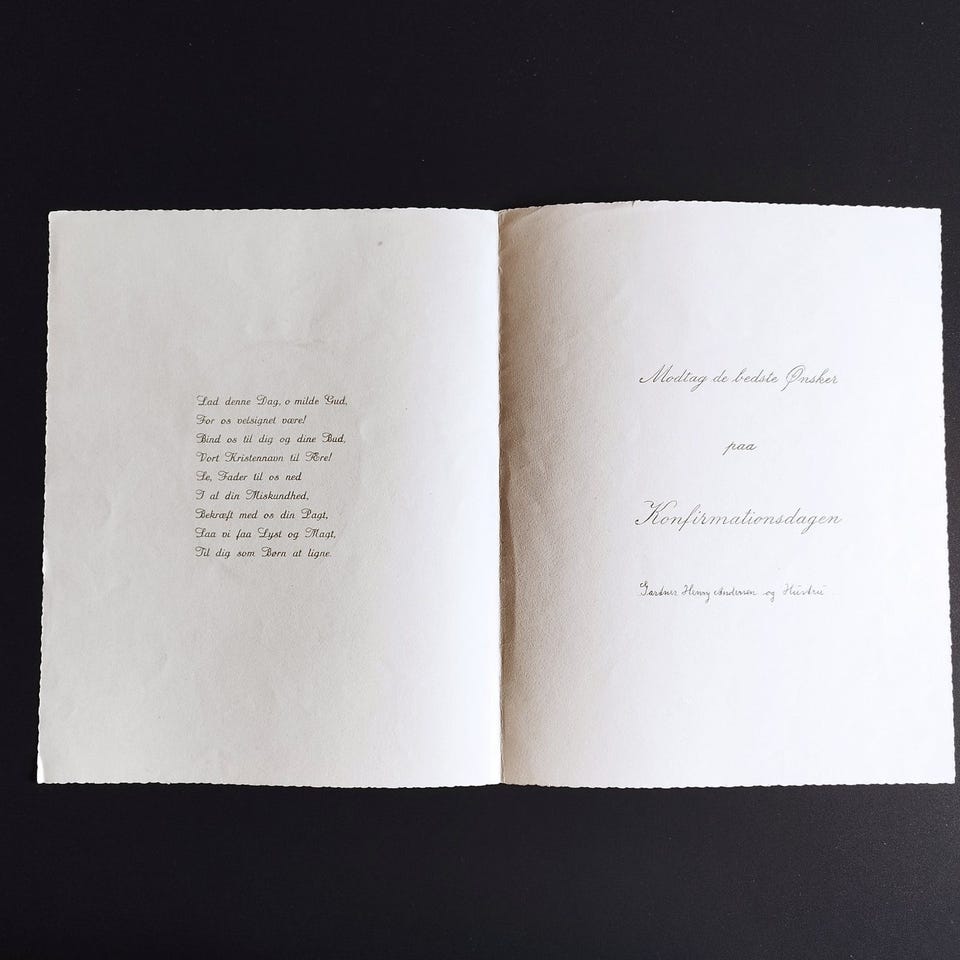 Lad denne Dag, o milde Gud,
For os velsignet være!
Bind os til dig og dine Bud,
Vort Kristennavn til Ære!
Se, Fader til os ned
I al din Miskundhed,
Bekræft med os din Pagt,
Saa vi faa Lyst og Magt,
Til dig som Børn at ligne.
Modtag de bedste Ønsker
paa
Konfirmationsdagen
Gartner Henny Andersen og Hustru